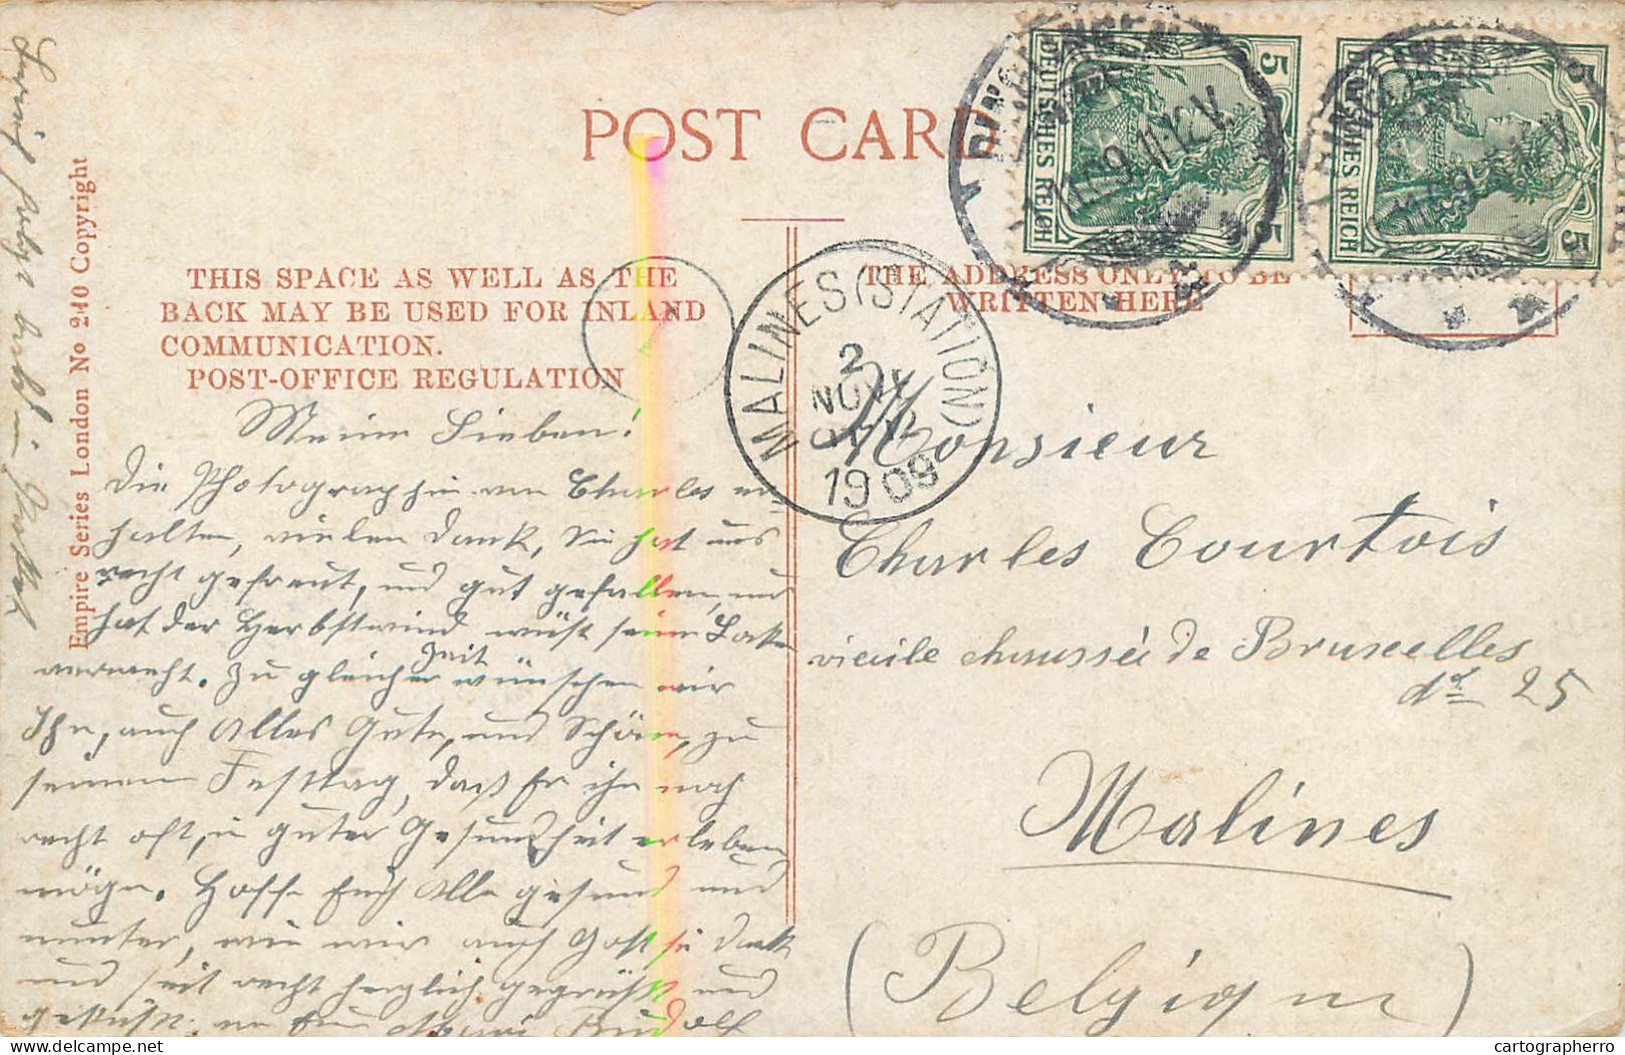 POST CARD
THIS SPACE AS WELL AS THE
BACK MAY BE USED FOR INLAND
COMMUNICATION.
POST-OFFICE REGULATION
THE ADDRESS ONLY TO BE
WRITTEN HERE
Empire Series London No 240 Copyright
DEUTSCHES REICH 5 5
DEUTSCHES REICH 5 5
11 09 11-12 V.
MALINES (STATION)
2
NOV
1909
Meine Lieben!
Die Photographie von Charles er
halten, vielen Dank, Sie hat uns
recht gefreut, und gut gefallen, und
hat der Herbstwind, wüst seine
verweht. Zu gleicher Zeit wünschen wir
Ihn, auch Alles Gute, und Schöne, zu
seinem Festtag, daß Er ihn noch
recht oft, in guter Gesundheit erleben
möge. Hoffe Euch Alle gesund und
munter, wie wir auch Gott sei Dank
und seit recht herzlich gegrüßt und
geküßt. von Rudolf
Brief folgt
Monsieur
Charles Courtois
vieille chaussée de Bruxelles
25
Malines
(Belgique)
delcampe.net
cartographerro